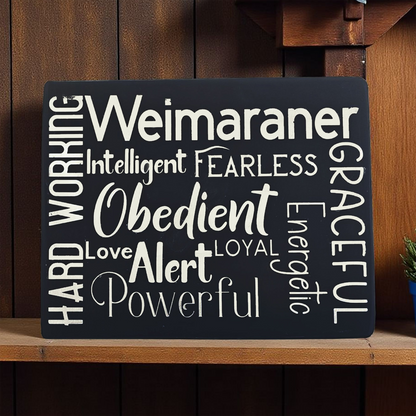 Weimaraner
HARD WORKING
Intelligent FEARLESS
Obedient
Love Alert LOYAL
Powerful
Energetic
GRACEFUL